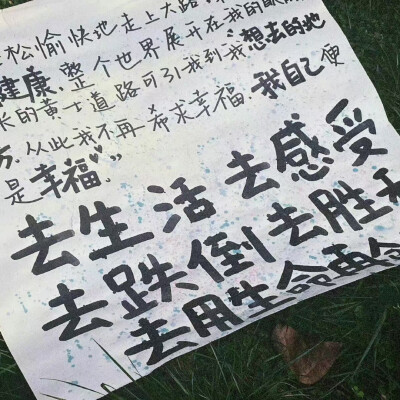 松愉快地走上大路
健康，整个世界展开在我的眼前
长的黄土道路可引我到我“想去的地
方，从此我不再希求幸福，我自己便
是幸福。”
去生活 去感受
去跌倒 去胜
去用生命再